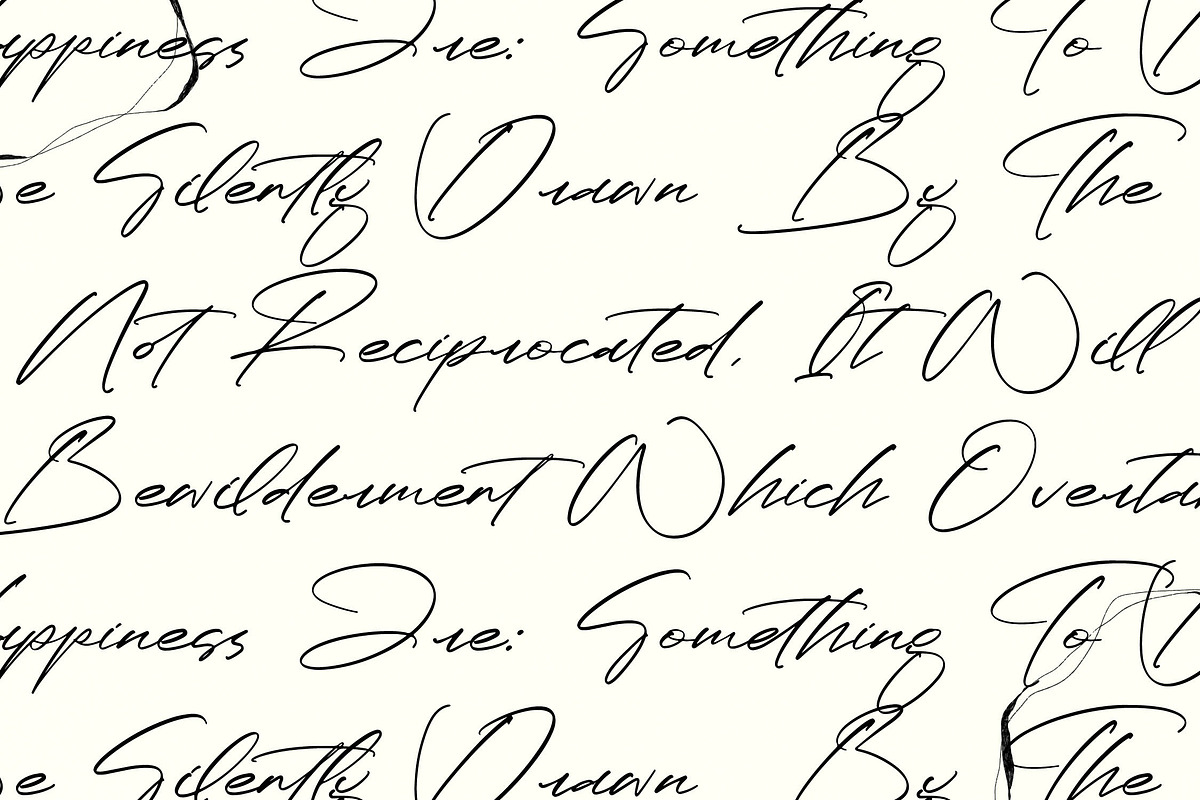 ppiness Are: Something To
e Silently Drawn By The
Not Reciprocated, It Will
Bewilderment Which Overta
ppiness Are: Something To
e Silently Drawn By The